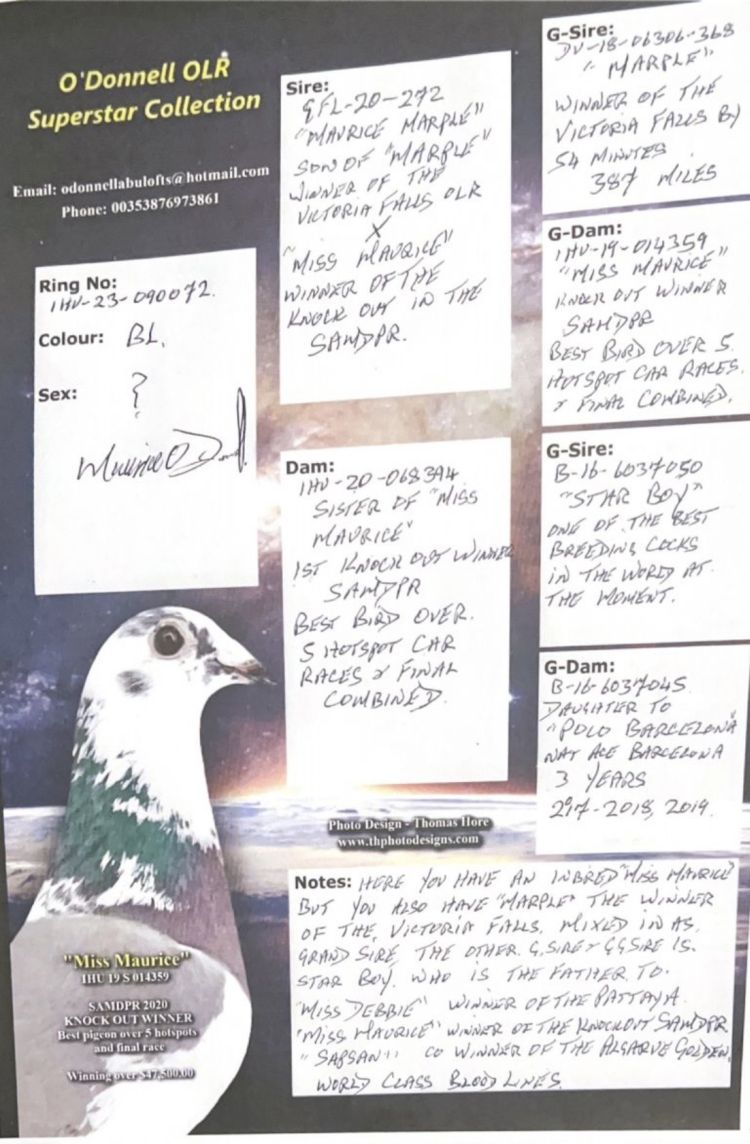 O'Donnell OLR
Superstar Collection
Email: odonnellabulofts@hotmail.com
Phone: 00353876973861
Ring No:
IHU-23-090072.
Colour: BL.
Sex: ?
Sire:
GFL-20-272
"MAURICE MARPLE"
SON OF "MARPLE"
WINNER OF THE
VICTORIA FALLS OLR
X
"MISS MAURICE"
WINNER OF THE
KNOCK OUT IN THE
SAMDPR.
Dam:
IHU-20-068394
SISTER OF "MISS
MAURICE"
1ST KNOCK OUT WINNER
SAMDPR
BEST BIRD OVER.
5 HOTSPOT CAR
RACES & FINAL
COMBINED.
G-Sire:
DV-18-06306-368
"MARPLE"
WINNER OF THE
VICTORIA FALLS BY
54 MINUTES
387 MILES
G-Dam:
IHU-19-014359
"MISS MAURICE"
KNOCK OUT WINNER
SAMDPR
BEST BIRD OVER 5.
HOTSPOT CAR RACES.
& FINAL COMBINED.
G-Sire:
B-16-6037050
"STAR BOY"
ONE OF THE BEST
BREEDING COCKS
IN THE WORLD AT.
THE MOMENT.
G-Dam:
B-16-6037045
DAUGHTER TO
"POLO BARCELONA"
NAT ACE BARCELONA
3 YEARS
2017-2018, 2019.
Photo Design - Thomas Hore
www.thphotodesigns.com
Notes: HERE YOU HAVE AN INBRED "MISS MAURICE"
BUT YOU ALSO HAVE "MARPLE" THE WINNER
OF THE VICTORIA FALLS. MIXED IN AS.
GRAND SIRE, THE OTHER G.SIRE & GGSIRE IS.
STAR BOY. WHO IS THE FATHER TO.
"MISS DEBBIE" WINNER OF THE PATTAYA.
"MISS MAURICE" WINNER OF THE KNOCKOUT SAMDPR
"SAPSAN" CO WINNER OF THE ALGARVE GOLDEN.
WORLD CLASS BLOOD LINES.
"Miss Maurice"
IHU 19 S 014359
SAMDPR 2020
KNOCK OUT WINNER
Best pigeon over 5 hotspots
and final race
Winning over $47,500.00